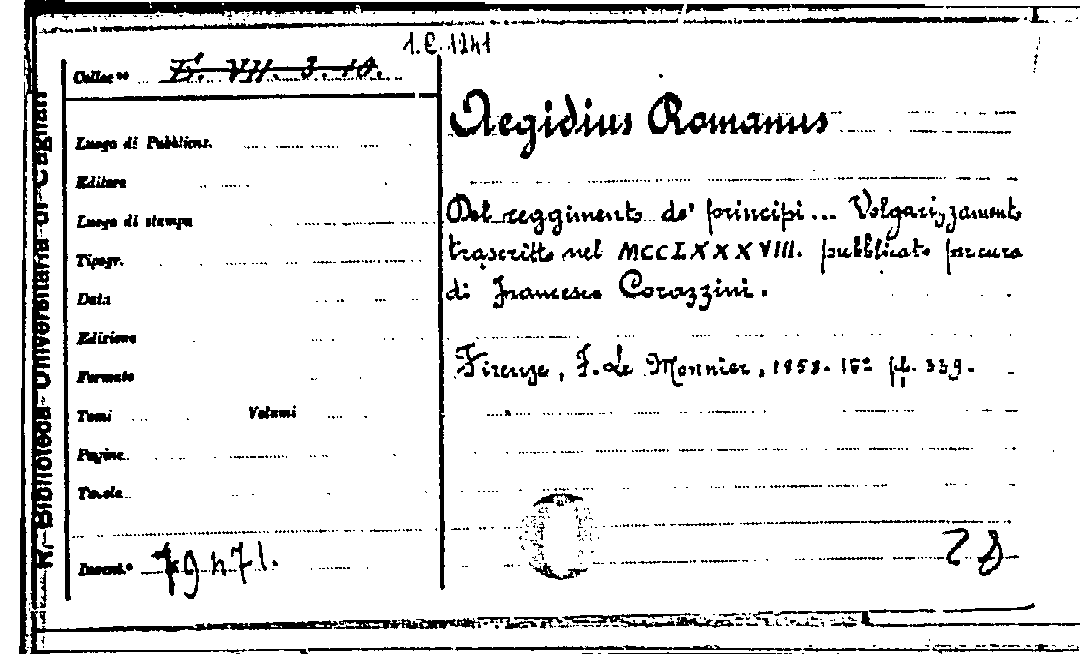 1.C.1241
Colloc.ne Fr. VII. 3. 10.
R. Biblioteca Universitaria di Cagliari
Luogo di Pubblicaz.
Editore
Luogo di stampa
Tipogr.
Data
Edizione
Formato
Tomi Volumi
Pagine
Tavole
Invent.°
Aegidius Romanus
Del reggimento de' principi... Volgarizzamento
trascritto nel MCCLXXXVIII. pubblicato per cura
di Francesco Corazzini.
Firenze, F. Le Monnier, 1858. 16° pp. 339.
28